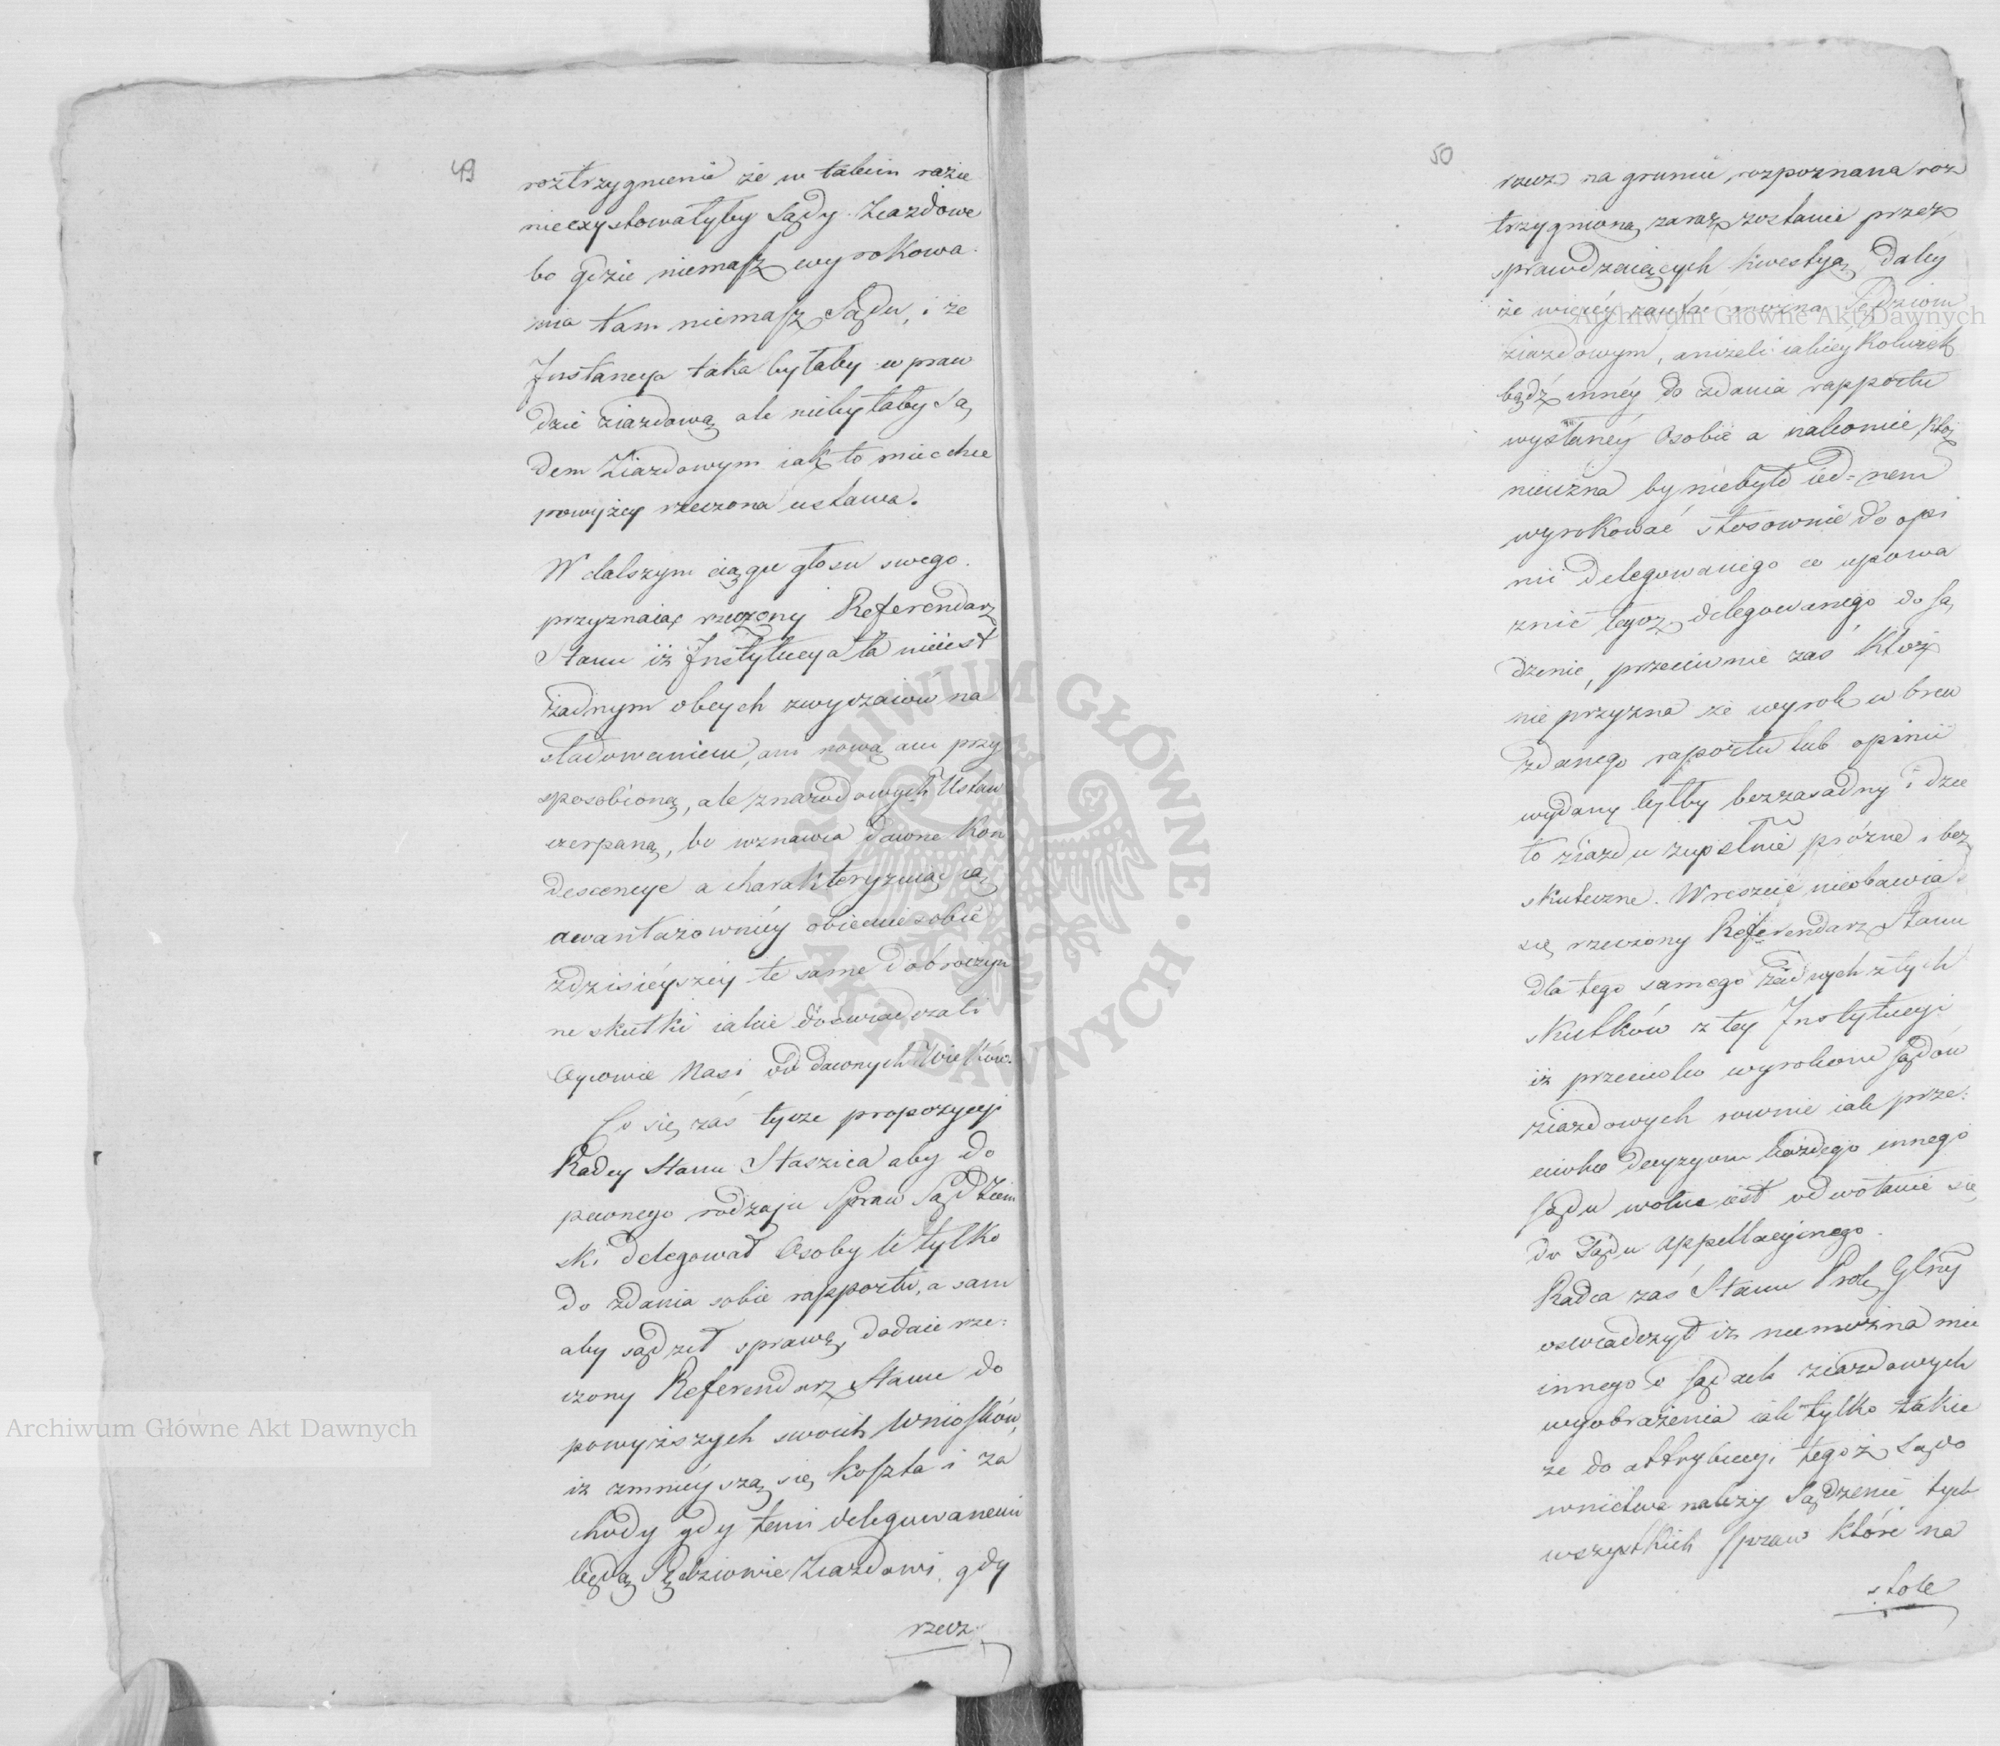 49
roztrzygnienia że w takim razie
nieexystowałyby Sądy Ziazdowe
bo gdzie niemasz wyrokowa
nia tam niemasz Sądu, i że
Instancya taka byłaby w praw
dzie ziazdową ale niebyłaby Są
dem Ziazdowym iak to mieć chce
powyżey rzeczona ustawa.
W dalszym ciągu głosu swego
przyznaiąc rzeczony Referendarz
Stanu iż Instytucya ta nieiest
żadnym obcych zwyczaiów na
sladowaniem, ani nową ani przy
sposobioną, ale z narodowych Ustaw
czerpaną, bo wznawia dawne Kon
descencye a charakteryzuiąc ią
awantażowniéy obiecuie sobie
z dzisiéyszéy te same dobroczyn
ne skutki iakie doświadczali
Oycowie Nasi od dawnych Wieków.
Co się zaś tycze propozycyi
Radcy Stanu Staszica aby do
pewnego rodzaju Spraw Sąd Ziem
ski delegował Osoby te tylko
do zdania sobie rapportu, a sam
aby sądził sprawę, dodaie rze:
czony Referendarz Stanu do
powyższych swoich Wniosków,
iż zmnieyszą się koszta i za
chody gdy temi delegowanemi
będą Sędziowie Ziazdowi, gdy
rzecz
50
rzecz na gruncie rozpoznana roz
trzygnioną zaraz zostanie przez
sprawdzaiących kwestyą, daléy
że więcéy zaufać można Sędziom
ziazdowym, aniżeli iakiéy kolwiek
bądź innéy do zdania rapportu
wysłanéy Osobie a nakoniec któż
nieuzna by niebyło ied=nem
wyrokować stosownie do opi
nii delegowanego co upowa
żnić tegoż delegowanego do są
dzenia, przeciwnie zaś któż
nie przyzna że wyrok wbrew
zdanego raportu lub opinii
wydany byłby bezzasadny i dzie
ło ziazdu zupełnie próżne i bez
skuteczne. Wreszcie nieobawia
się rzeczony Referendarz Stanu
dla tego samego żadnych złych
skutków z tey Instytucyi
iż przeciwko wyrokom Sądów
ziazdowych rownie iak prze:
ciwko decyzyom każdego innego
Sądu wolne iest odwołanie się
do Sądu Appellacyinego.
Radca zaś Stanu Prok. Glny
oswiadczył iż niemożna mieć
innego o Sądach ziazdowych
wyobrażenia iak tylko takie
że do attrybucyi tegoż Sądo
wnictwa należy Sądzenie tych
wszystkich Spraw które na
stole
Archiwum Główne Akt Dawnych
Archiwum Główne Akt Dawnych
ARCHIWUM GŁÓWNE AKT DAWNYCH